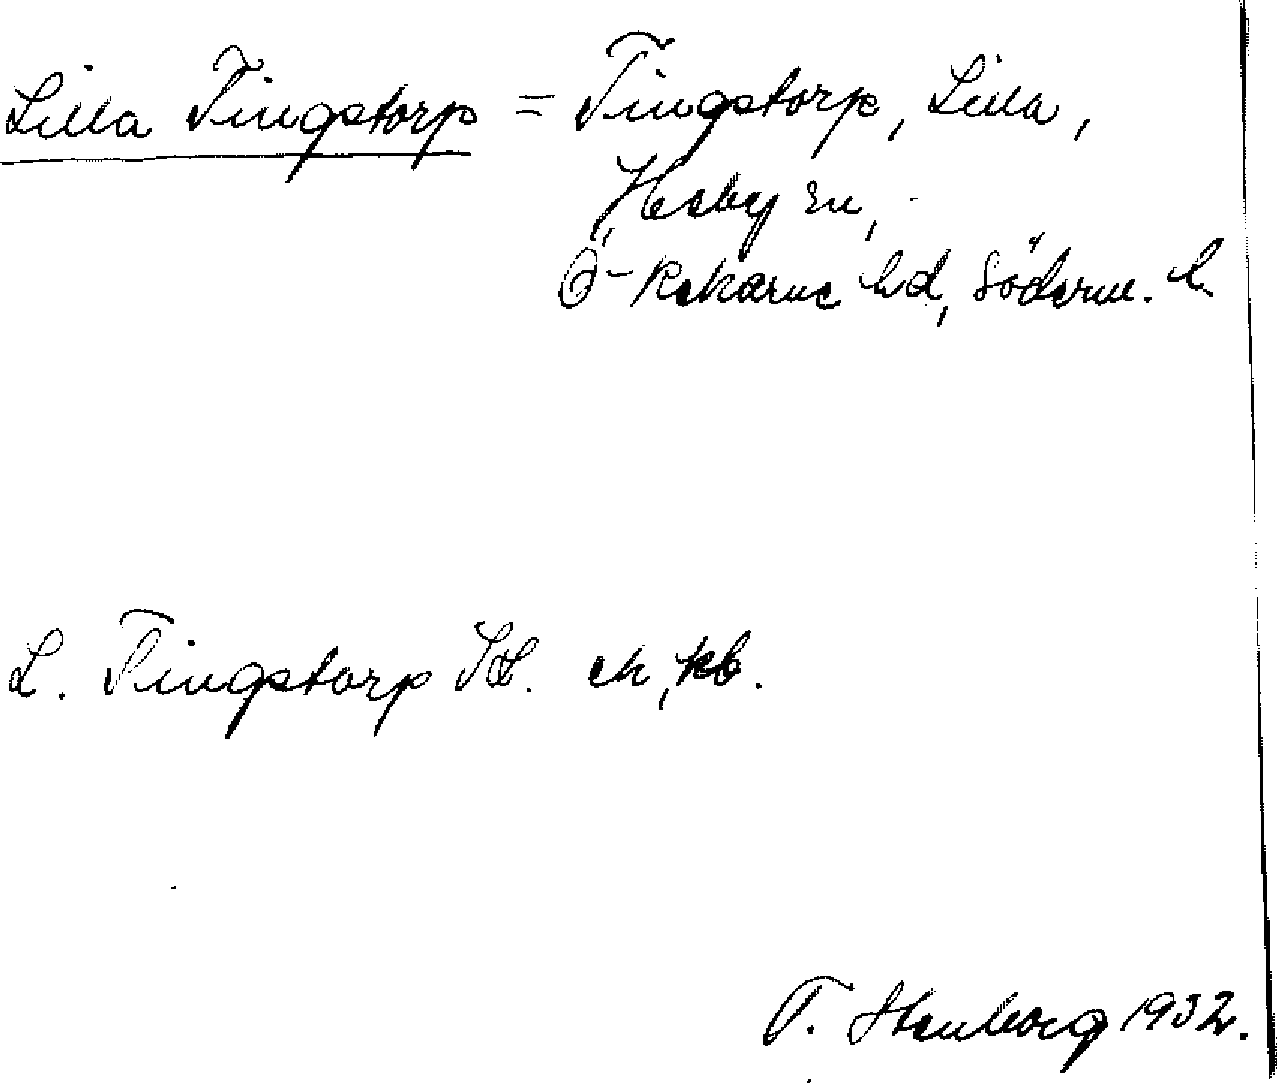 Lilla Tingstorp = Tingstorp, Lilla,
Husby sn,
Ö-Rekarne hd, Söderm. l.
L. Tingstorp Jd. ek, kb.
T. Stenborg 1932.